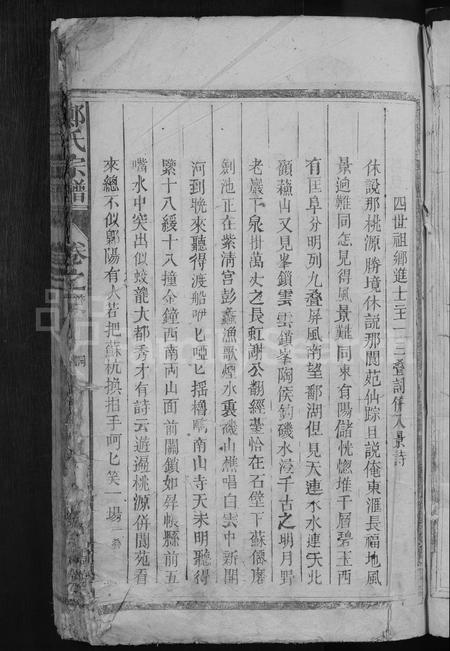 四世祖鄉進士三十二疊詞併八景詩
休說那桃源勝境休說那閬苑仙踪且說俺東滙長福地風
景逈雖同怎見得風景難同東有陽儲恍惚堆千層碧玉西
有匡阜分明列九疊屏風南望鄱湖但見天連水水連天北
顧蘓山又見峯鎖雲雲鎖峯陶侯釣磯水浸千古之明月野
老巖下泉掛萬丈之長虹謝公翻經臺恰在石壁下蘇僊磨
劍池正在紫清宮彭蠡漁歌煙水裏磯山樵唱白雲中新開
河到晩來聽得渡船吚匕啞匕搖櫓嘴南山寺天未明聽得
緊十八緩十八撞金鐘西南両山面前關鎖如昇帳縣前五
嘴水中突出似蛟龍大都秀才有詩云遊遍桃源併閬苑看
來總不似鄡陽有人若把蘇杭換拍手呵匕笑一場
鄭氏宗譜
卷之